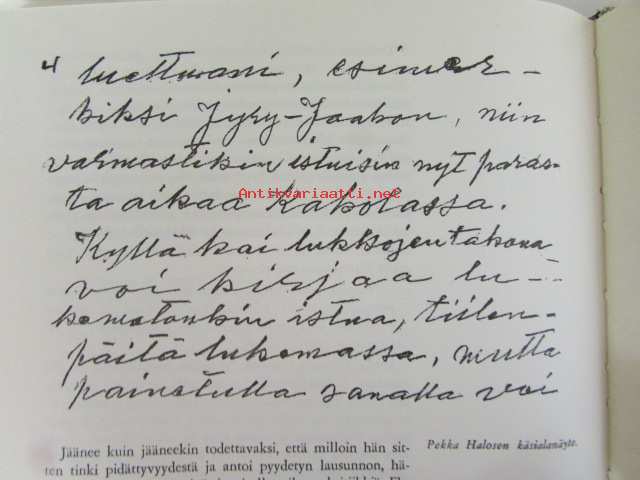 4
luettuani, esimer-
kiksi Jyry-Jaakon, niin
varmastikin istuisin nyt paras-
ta aikaa Kakolassa.
Antikvariaatti.net
Kyllä kai lukkojen takana
voi kirjaa lu-
kematonkin istua, tiilen-
päitä lukemassa, mutta
painetulla sanalla voi
Jäänee kuin jääneekin todettavaksi, että milloin hän sit-
ten tinki pidättyvyydestä ja antoi pyydetyn lausunnon, hä-
Pekka Halosen käsialanäyte.